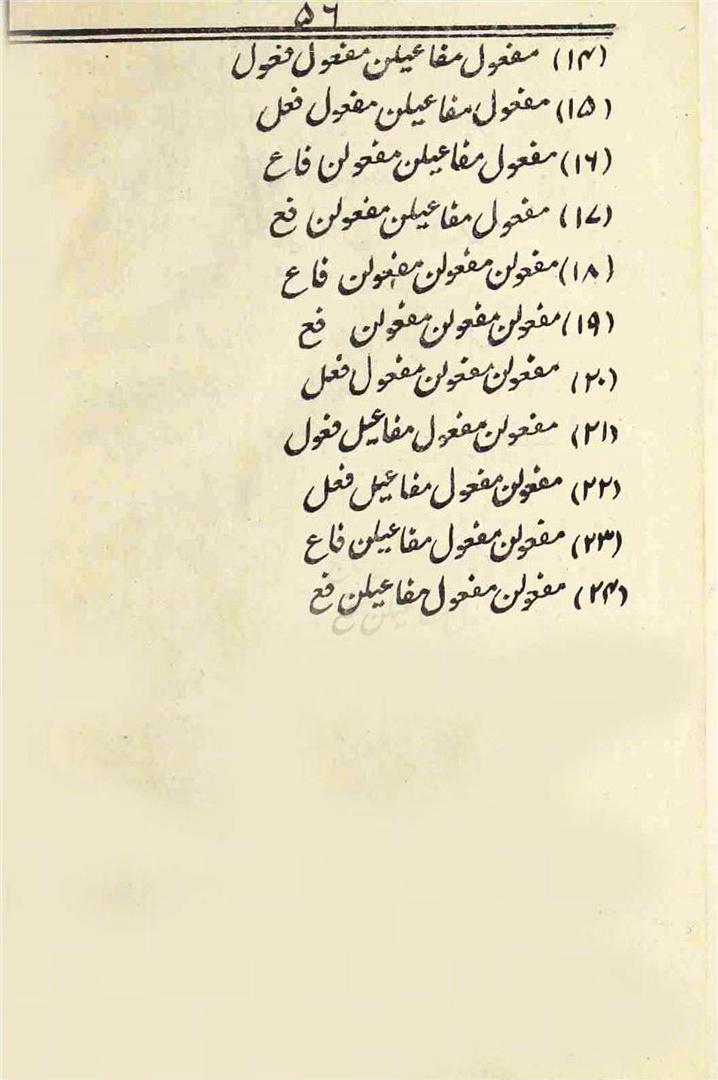 ۵۶
(۱۴) مفعول مفاعیلن مفعول فعول
(۱۵) مفعول مفاعیلن مفعول فعل
(۱۶) مفعول مفاعیلن مفعولن فاع
(۱۷) مفعول مفاعیلن مفعولن فع
(۱۸) مفعولن مفعولن مفعولن فاع
(۱۹) مفعولن مفعولن مفعولن فع
(۲۰) مفعولن مفعولن مفعول فعل
(۲۱) مفعولن مفعول مفاعیل فعول
(۲۲) مفعولن مفعول مفاعیل فعل
(۲۳) مفعولن مفعول مفاعیلن فاع
(۲۴) مفعولن مفعول مفاعیلن فع